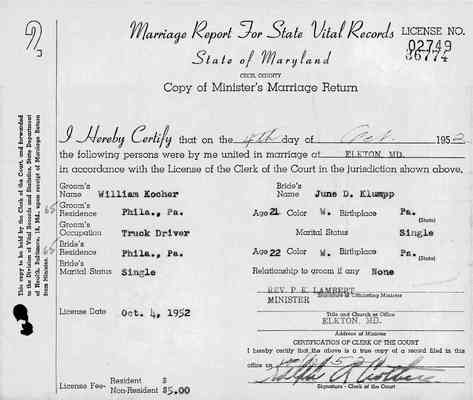 Marriage Report For State Vital Records
LICENSE NO.
02749
36774
State of Maryland
CECIL COUNTY
Copy of Minister's Marriage Return
This copy to be held by the Clerk of the Court, and forwarded
to the Division of Vital Records and Statistics, State Department
of Health, Baltimore, 18, Md., upon receipt of Marriage Return
from Minister.
I Hereby Certify that on the 4th day of Oct. 1952
the following persons were by me united in marriage at ELKTON, MD.
in accordance with the License of the Clerk of the Court in the jurisdiction shown above.
Groom's Name William Kocher Bride's Name June D. Klumpp
65 Groom's Residence Phila., Pa. Age 21 Color W. Birthplace Pa. (State)
Groom's Occupation Truck Driver Marital Status Single
65 Bride's Residence Phila., Pa. Age 22 Color W. Birthplace Pa. (State)
Bride's Marital Status Single Relationship to groom if any None
REV. P E LAMBERT
MINISTER Signature of Officiating Minister
License Date Oct. 4, 1952
Title and Church or Office
ELKTON, MD.
Address of Minister
CERTIFICATION OF CLERK OF THE COURT
I hereby certify that the above is a true copy of a record filed in this
office on
Signature - Clerk of the Court
License Fee- Resident $
Non-Resident $5.00